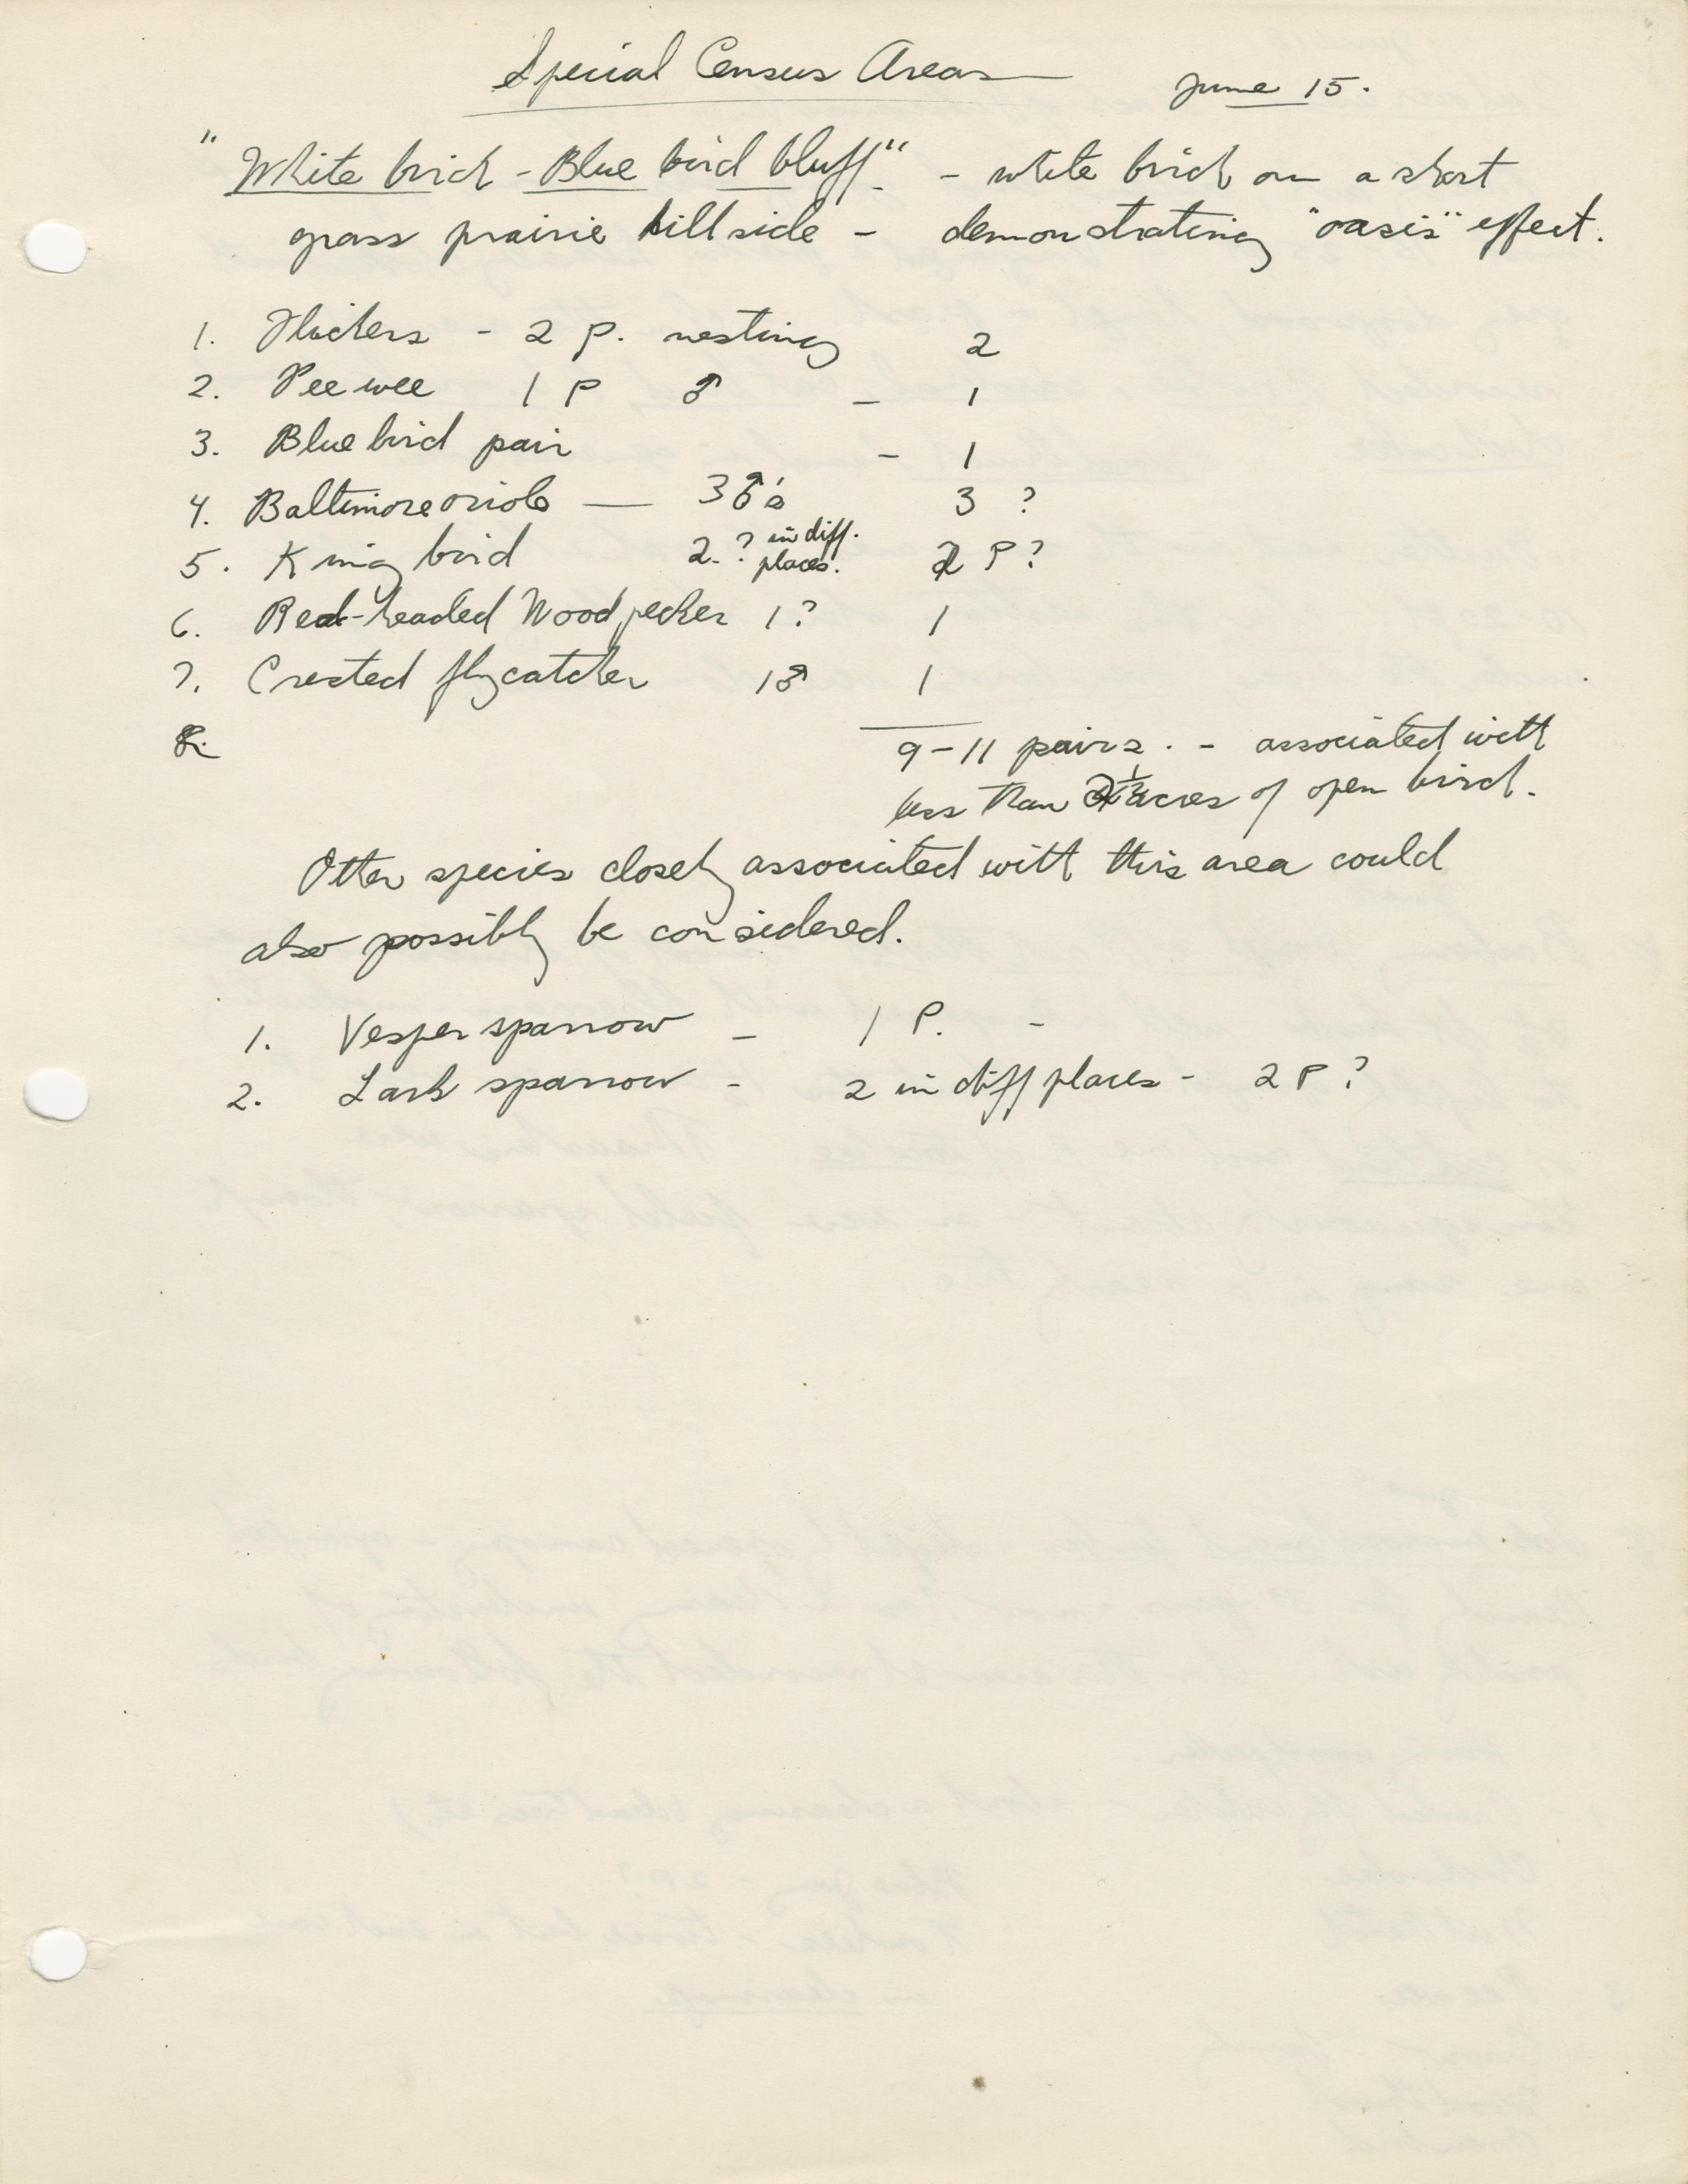 Special Census Areas June 15.
"White birch - Blue bird bluff" - white birch on a short
grass prairie hillside - demonstrating "oasis" effect.
1. Flickers - 2 P. nesting 2
2. Pee wee 1 P ♂ - 1
3. Blue bird pair - 1
4. Baltimore oriole — 3 ♂'s 3 ?
5. King bird 2 ? in diff. places. 2 P ?
6. Red-headed Woodpecker 1 ? 1
7. Crested flycatcher 1♂ 1
8.
9-11 pairs. - associated with
less than acres of open birch.
Other species closely associated with this area could
also possibly be considered.
1. Vesper sparrow - 1 P. -
2. Lark sparrow - 2 in diff places - 2 P ?